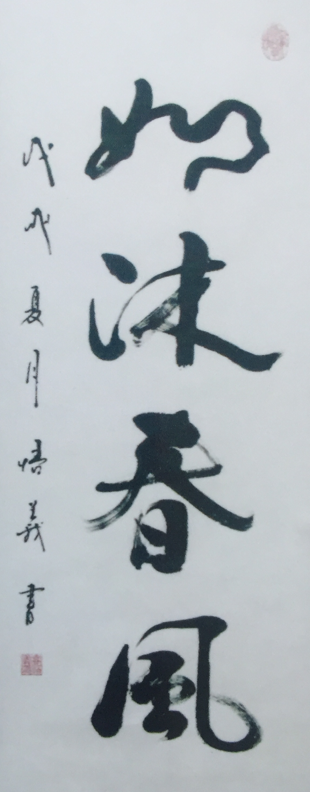 如沐春風
戊戌夏月悟義書